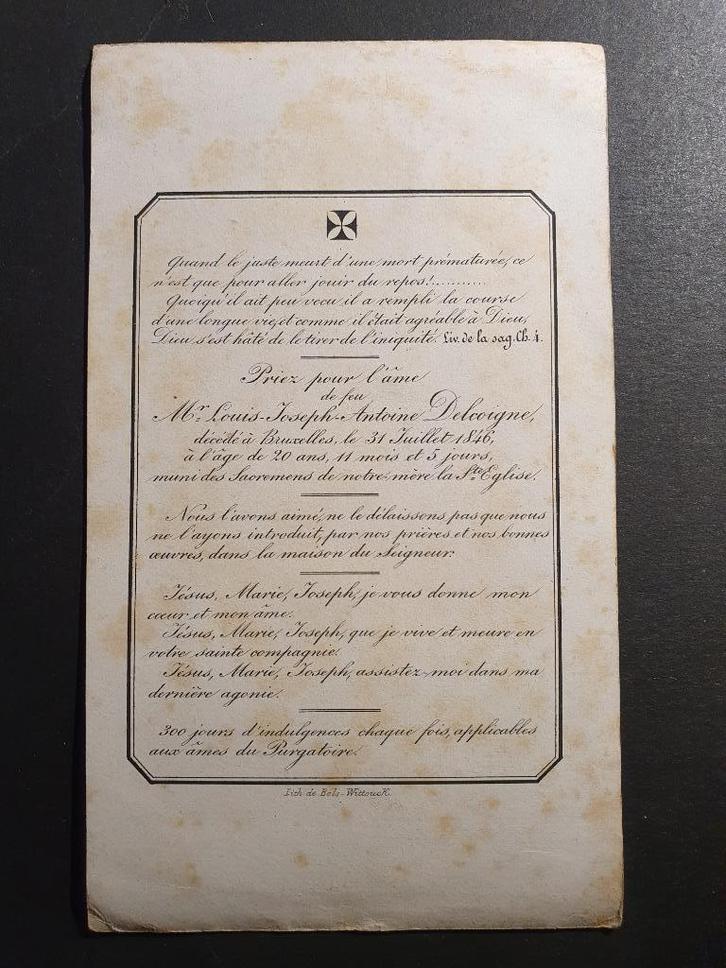 Quand le juste meurt d'une mort prématurée, ce
n'est que pour aller jouir du repos!..........
Quoiqu'il ait peu vecu il a rempli la course
d'une longue vie, et comme il était agréable à Dieu,
Dieu s'est hâté de le tirer de l'iniquité. Liv. de la sag. Ch. 4.
Priez pour l'âme
de feu
Mr. Louis-Joseph-Antoine Delcoigne,
décédé à Bruxelles, le 31 Juillet 1846,
à l'âge de 20 ans, 11 mois et 5 jours,
muni des Sacremens de notre mère la Ste. Eglise.
Nous l'avons aimé, ne le délaissons pas que nous
ne l'ayons introduit, par nos prières et nos bonnes
œuvres, dans la maison du Seigneur.
Jésus, Marie, Joseph, je vous donne mon
cœur et mon âme.
Jésus, Marie, Joseph, que je vive et meure en
votre sainte compagnie.
Jésus, Marie, Joseph, assistez-moi dans ma
dernière agonie.
300 jours d'indulgences chaque fois, applicables
aux âmes du Purgatoire.
Lith de Bols-Wittouck.